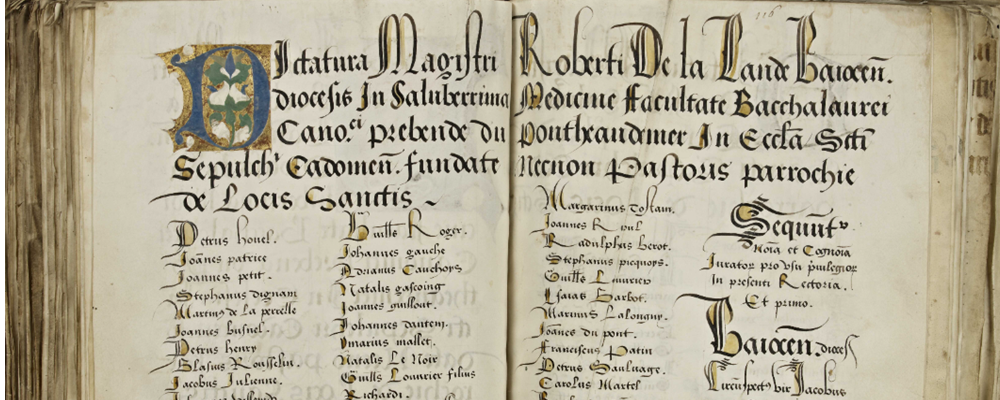 Dictatura Magistri Roberti De la Lande Baiocen̄.
diocesis In Saluberrima Medicine facultate Bacchalaurei
Cano.ci prebende du ponteaudemer In Eccl̄a Sct̄i
Sepulchr Cadomen̄. fundate necnon Pastoris parrochie
de Locis Sanctis ~
Petrus houel.
Joānes patrice
Joannes petit.
Stephanus dignam
Martinꝰ de la percelle
Joannes busnel.
Petrus henry
Blasius Rousselin.
Jacobus Julienne.
Guill̄s Roger.
Johannes gauche
Adrianus Cauchoys
Natalis gascoing
Joannes guillout.
Johannes dantem.
Ymarius mallet.
Natalis Le Noir
Guill̄s Louvrier filius
Richardi.
Margarinus tostam.
Joannes Roul
Radulphus herot.
Stephanus picquoys.
Guill̄s Louvrier
Isaias barbot.
Marinus Lalonguy.
Joānes du pont.
Franciscus Patin
Petrus Sauluage.
Carolus Martel
116
Sequnt̄r
Noīa et Cognoīa
Jurator pro vsu priuilegior
in presenti Rectoria.
Et primo.
Baiocen̄. dioces
Circūspectꝰ vir Jacobus